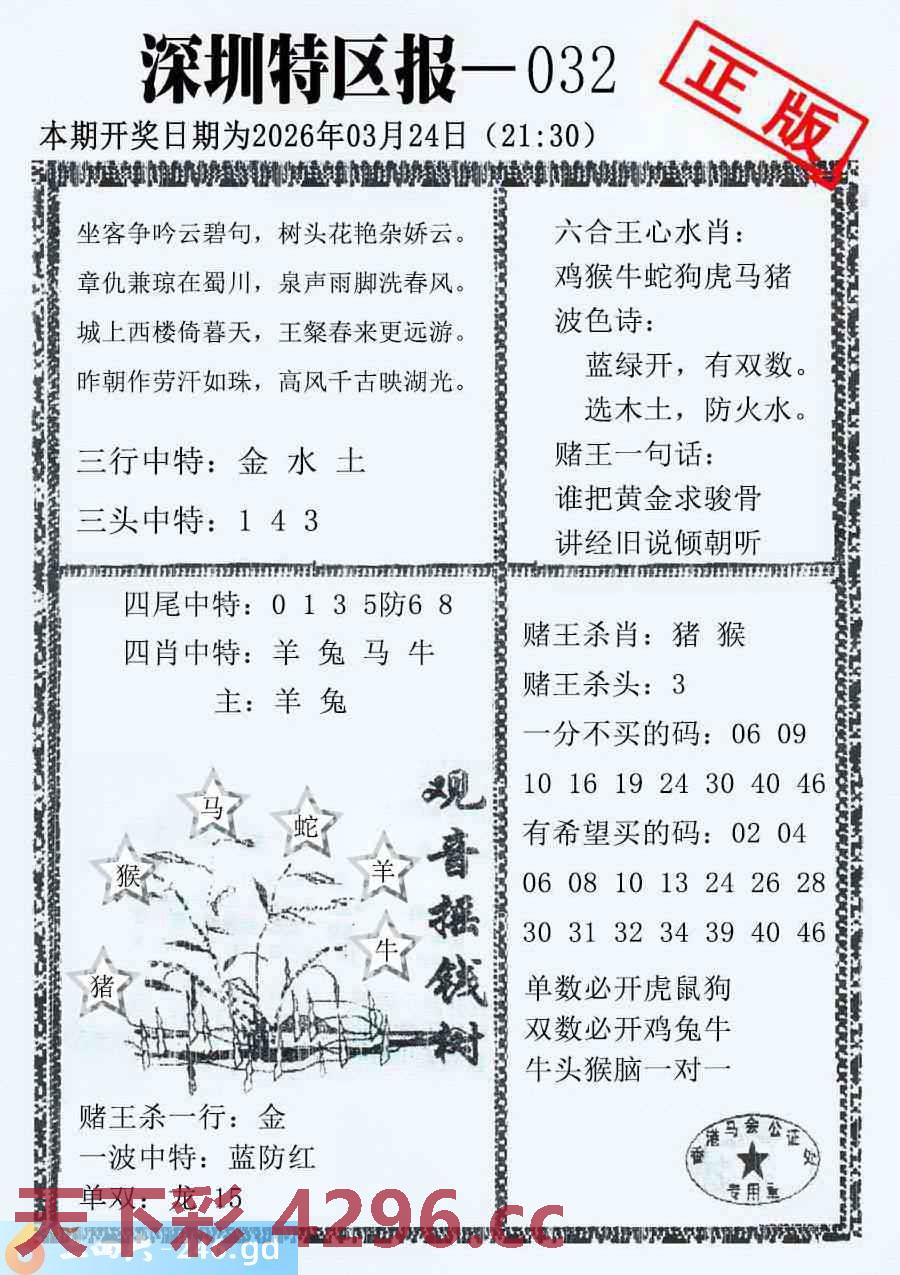 深圳特区报—032
正版
本期开奖日期为2026年03月24日（21:30）
坐客争吟云碧句，树头花艳杂娇云。
章仇兼琼在蜀川，泉声雨脚洗春风。
城上西楼倚暮天，王粲春来更远游。
昨朝作劳汗如珠，高风千古映湖光。
三行中特：金 水 土
三头中特：1 4 3
六合王心水肖：
鸡猴牛蛇狗虎马猪
波色诗：
蓝绿开，有双数。
选木土，防火水。
赌王一句话：
谁把黄金求骏骨
讲经旧说倾朝听
四尾中特：0 1 3 5防6 8
四肖中特：羊 兔 马 牛
主：羊 兔
观音摇钱树
马
蛇
猴
羊
牛
猪
赌王杀一行：金
一波中特：蓝防红
单双：龙 15
赌王杀肖：猪 猴
赌王杀头：3
一分不买的码：06 09
10 16 19 24 30 40 46
有希望买的码：02 04
06 08 10 13 24 26 28
30 31 32 34 39 40 46
单数必开虎鼠狗
双数必开鸡兔牛
牛头猴脑一对一
香港马会公证处
专用章
天下彩 4296.cc
246.gd